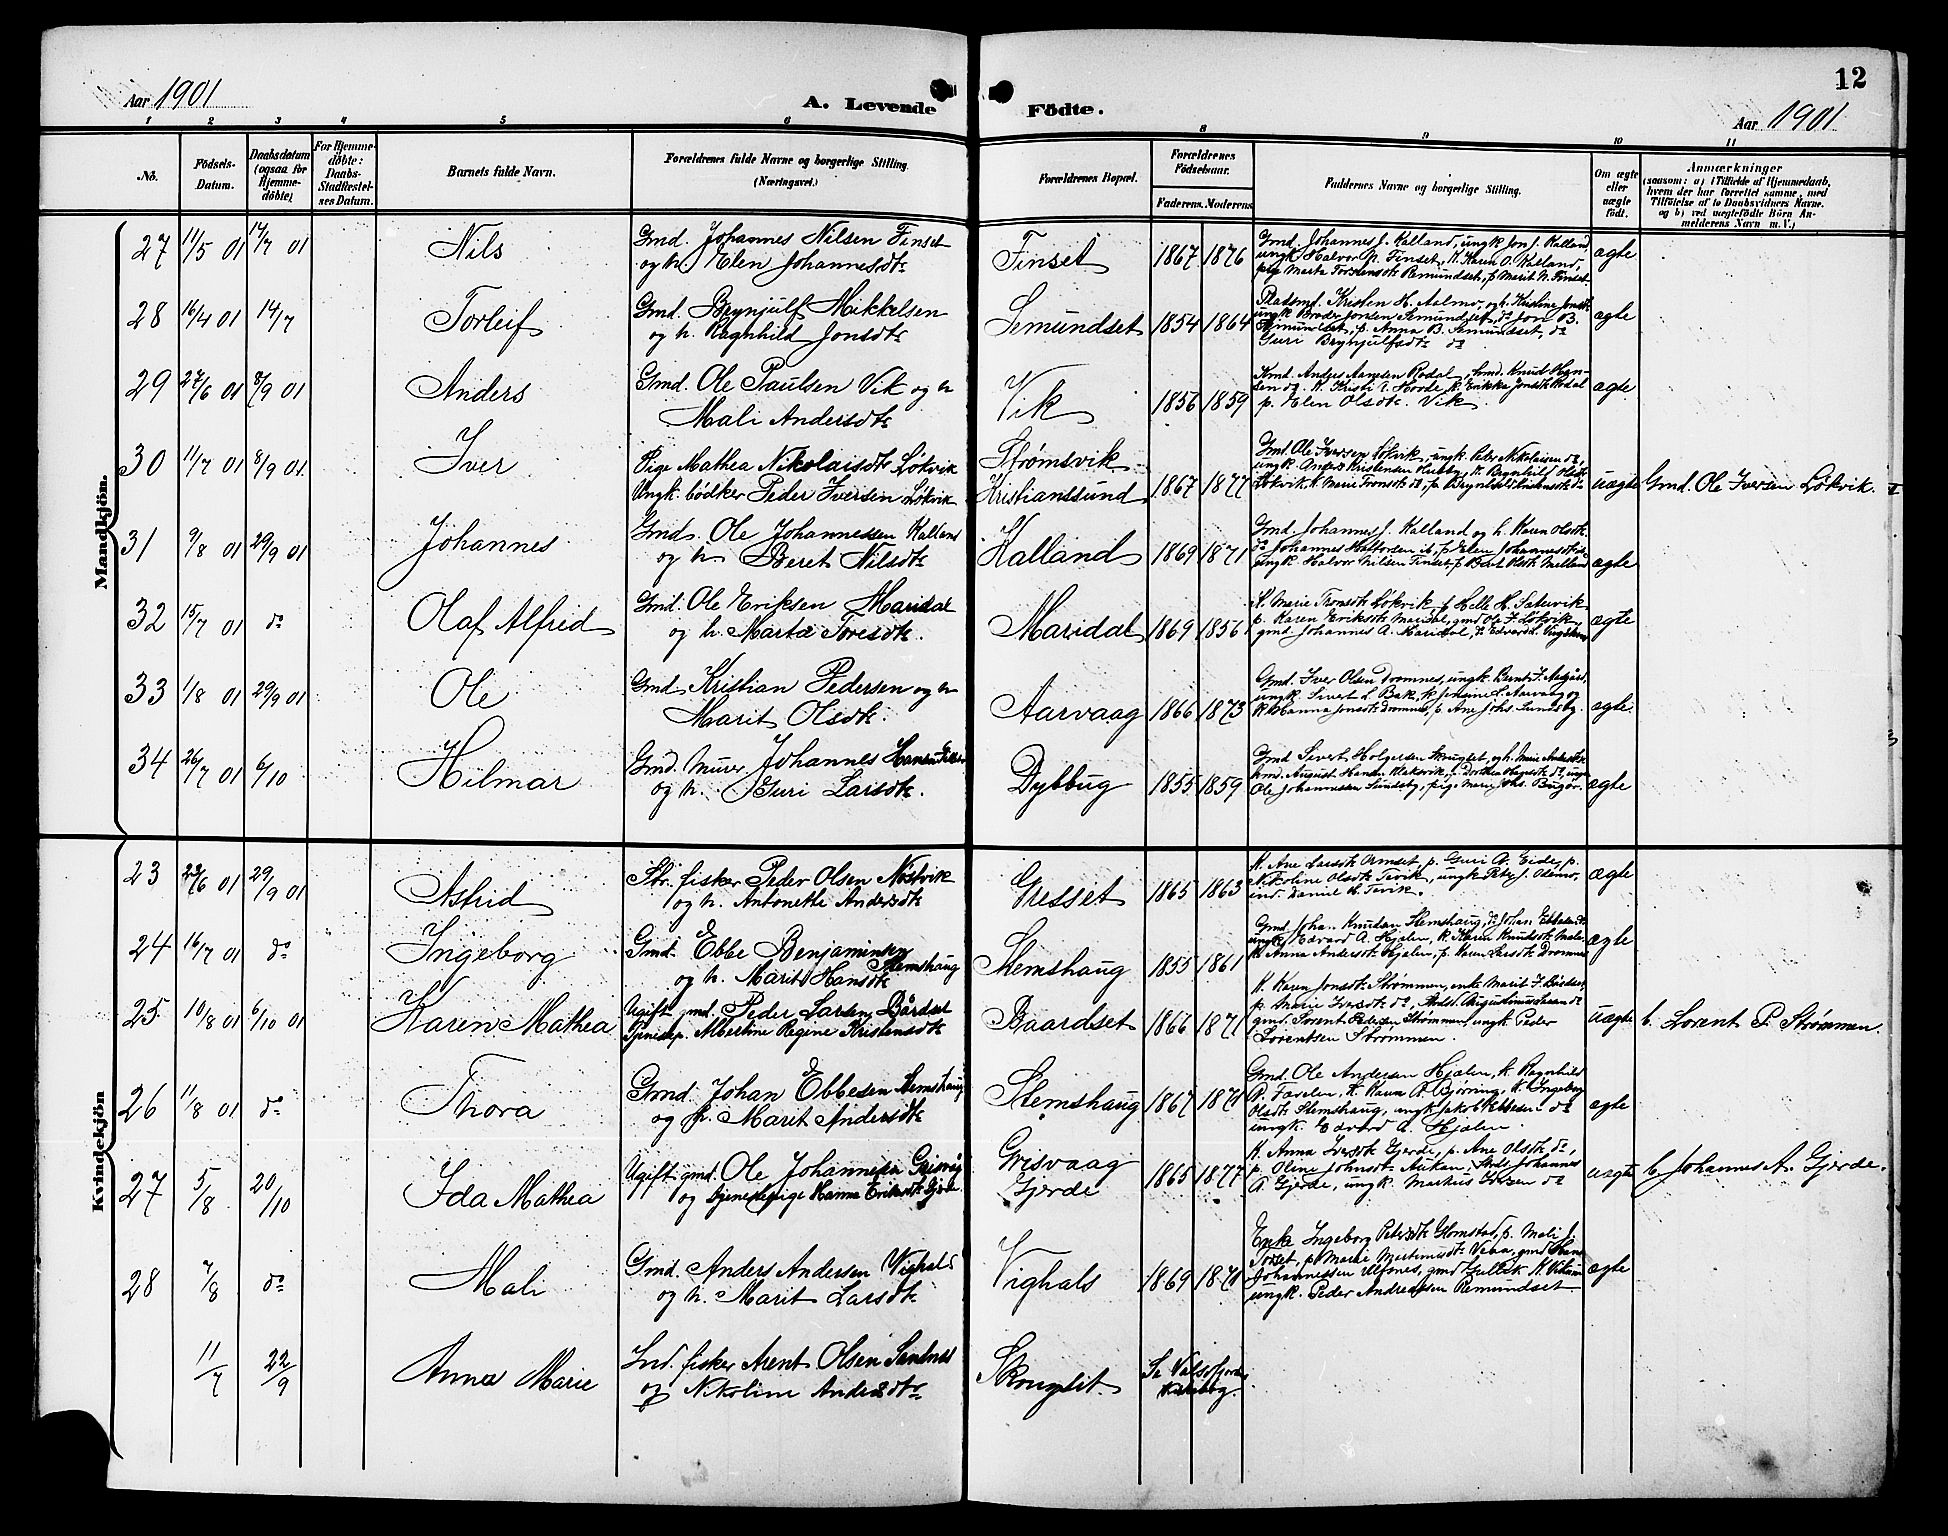 Aar 1901
A. Levende Födte.
12
Aar 1901
1 2 3 4 5 6 8 9 10 11
No.
Födsels-Datum.
Daabsdatum (ogsaa for Hjemme-döbte)
For Hjemme-döbte: Daabs-Stadfæstel-ses Datum.
Barnets fulde Navn.
Forældrenes fulde Navne og borgerlige Stilling. (Næringsvei.)
Forældrenes Bopæl.
Forældrenes Födselsaar.
Faderens. Moderens
Faddernes Navne og borgerlige Stilling.
Om ægte eller uægte födt.
Anmærkninger
(saasom: a) i Tilfælde af Hjemmedaab,
hvem der har forrettet samme, med
Tilföielse af to Daabsvidners Navne.
og b) ved uægtefödte Börn An-
melderens Navn m. V.)
Mandkjön.
27 11/5 01 14/7 01 Nils
Gmd. Johannes Nilsen Finset
og h. Elen Johannesdtr
Finset 1867 1876
Gmd. Johannes J. Kalland, ungk Jon J. Kalland
ungk Halvor N. Finset, K. Karen O. Kalland,
pige Marta Torstensdt Remundset, p Marit N. Finset
ægte
28 16/4 01 14/7 Torleif
Gmd. Brynjulf Mikkelsen
og h. Ragnhild Jonsdtr
Semundset 1854 1864
Pladsmd. Kristen H. Aalmo, og h. Kristine Jonsdt
ungk Broder Jonsen Semundset, do Jon B.
Semundset, p. Anna B. Semundset, do
Guri Brynjulfsdtr do
ægte
29 27/6 01 8/9 01 Anders
Gmd. Ole Paulsen Vik og h
Mali Andersdtr
Vik 1856 1859
Kmd. Anders Aanesen Rodal, Kmd. Knud Han-
sen do. K. Kristi Horde, K. Erikka Jonsdt Rodal
p. Elen Olsdtr. Vik
ægte
30 11/7 01 8/9 01 Iver
Pige Mathea Nikolaisdtr Løkvik
Ungk. bødker Peder Iversen Løkvik
Strømsvik
Kristianssund 1867 1877
Gmd. Ole Iversen Løkvik, ungk. Peter Nikolaisen do,
ungk. Anders Kristensen Husby, K. Brynhild Olsdt
Løkvik, K. Marie Tronsdt do, p. Brynhild do
uægte Gmd. Ole Iversen Løkvik.
31 9/8 01 29/9 01 Johannes
Gmd. Ole Johannessen Kalland
og h. Beret Nilsdtr
Kalland 1869 1871
Gmd. Johannes J. Kalland og h. Karen Olsdt.
Johannes Halvorsen ib, p. Elen Johannesdt
ungk. Halvor Nilsen Finset, p Melland
ægte
32 15/7 01 do Olaf Alfred
Gmd. Ole Eriksen Maridal
og h. Marta Toresdtr.
Maridal 1869 1856
K. Marie Tronsdt Løkvik, p Helle H. Satervik
p. Karen Eriksdt Maridal, gmd Ole I. Løkvik,
gmd. Johannes A. Maridal, Edvard
ægte
33 1/8 01 29/9 01 Ole
Gmd. Kristian Pedersen og h
Marit Olsdtr.
Aarvaag 1866 1873
Gmd. Iver Olsen Dromnes, ungk. Bernt
ungk. Sivert L. Bak, K. L. Aarvaag og
K. Hanna Jonsdt Dromnes, p. Ane Johs. Sundsby.
ægte.
34 26/7 01 6/10 Hilmar
Gmd. Murer Johannes Hansen
og h. Guri Larsdtr.
Dybbug 1855 1859
Gmd Sivert Holgersen Skruglet, og h. Marie
Kmd. August Hansen Klaksvik, p. Dorthea Hansdt do, ungk
Ole Johannessen Sundsby, pige Marie Johs.
ægte
Kvindekjön
23 29/6 01 29/9 01 Astrid
Str. fisker Peder Olsen Nøstvik
og h. Antonethe Andersdtr
Gresset 1865 1863
K. Ane Larsdt Ormset, p. Guri A. Eide, p.
Nikoline Olsdt Tevik, ungk Peter J.
ind. Daniel Tevik.
ægte
24 16/7 01 do Ingeborg
Gmd. Ebbe Benjaminsen
Stemshaug
og h. Marit Hansdtr
Stemshaug 1855 1861
Gmd. Johan Knudsen Stemshaug, do Johan Ebbesen do,
ungk Edvard A. Hjelen, K. Karen Knudsdt
K. Anna Andersdt Hjelen, p. Karen Larsdt Dromnes
ægte
25 10/8 01 6/10 01 Karen Mathea
Ugift gmd. Peder Larsen Bårdset
Tjenestep. Albertine Regine Kristensdtr
Baardset 1866 1871
K. Karen Jonsdt Strømmen, enke Marit F. Bårdset
p. Marie Iversdt do,
gmd. Lorent Pedersen Strømmen, ungk. Peder
Lorentsen Strømmen.
uægte b. Lorent P. Strømmen.
26 11/8 01 do Thora
Gmd. Johan Ebbesen Stemshaug
og h. Marit Andersdtr
Stemshaug 1867 1870
Gmd. Ole Andersen Hjelen, K. Ragnhild
P. K. Karen A. Bjøring, K. Ingeborg
Olsdt Stemshaug, ungk Jakob Ebbesen do
ungk. Edvard A. Hjelen.
ægte
27 5/8 20/10 Ida Mathea
Ugift gmd. Ole Johannesen Grisvåg
og tjenestepige Hanna Eriksdtr Gjerde
Grisvaag
Gjerde 1865 1877
K. Anna Iversdt Gjerde, p. Ane Olsdt do,
p. Oline Johnsdt Aukan, Johannes
A. Gjerde, ungk. Markus Iversen do
uægte b. Johannes A. Gjerde.
28 7/8 do Mali
Gmd. Anders Andersen Vighals
og h. Marit Larsdtr
Vighals 1869 1870
Enke Ingeborg Petersdt Glomstad, p. Mali J.
Torset, p. Marie Martinusdt Vebø, gmd
Johannessen Ulfsnes, gmd K.
ungk. Peder Andreassen Remundset
ægte
11/7 22/9 Anna Marie
Ind. fisker Arent Olsen Sandnes
og Nikoline Andersdtr
Skruglet.
Se Valsøfjorden
Kirkebog.